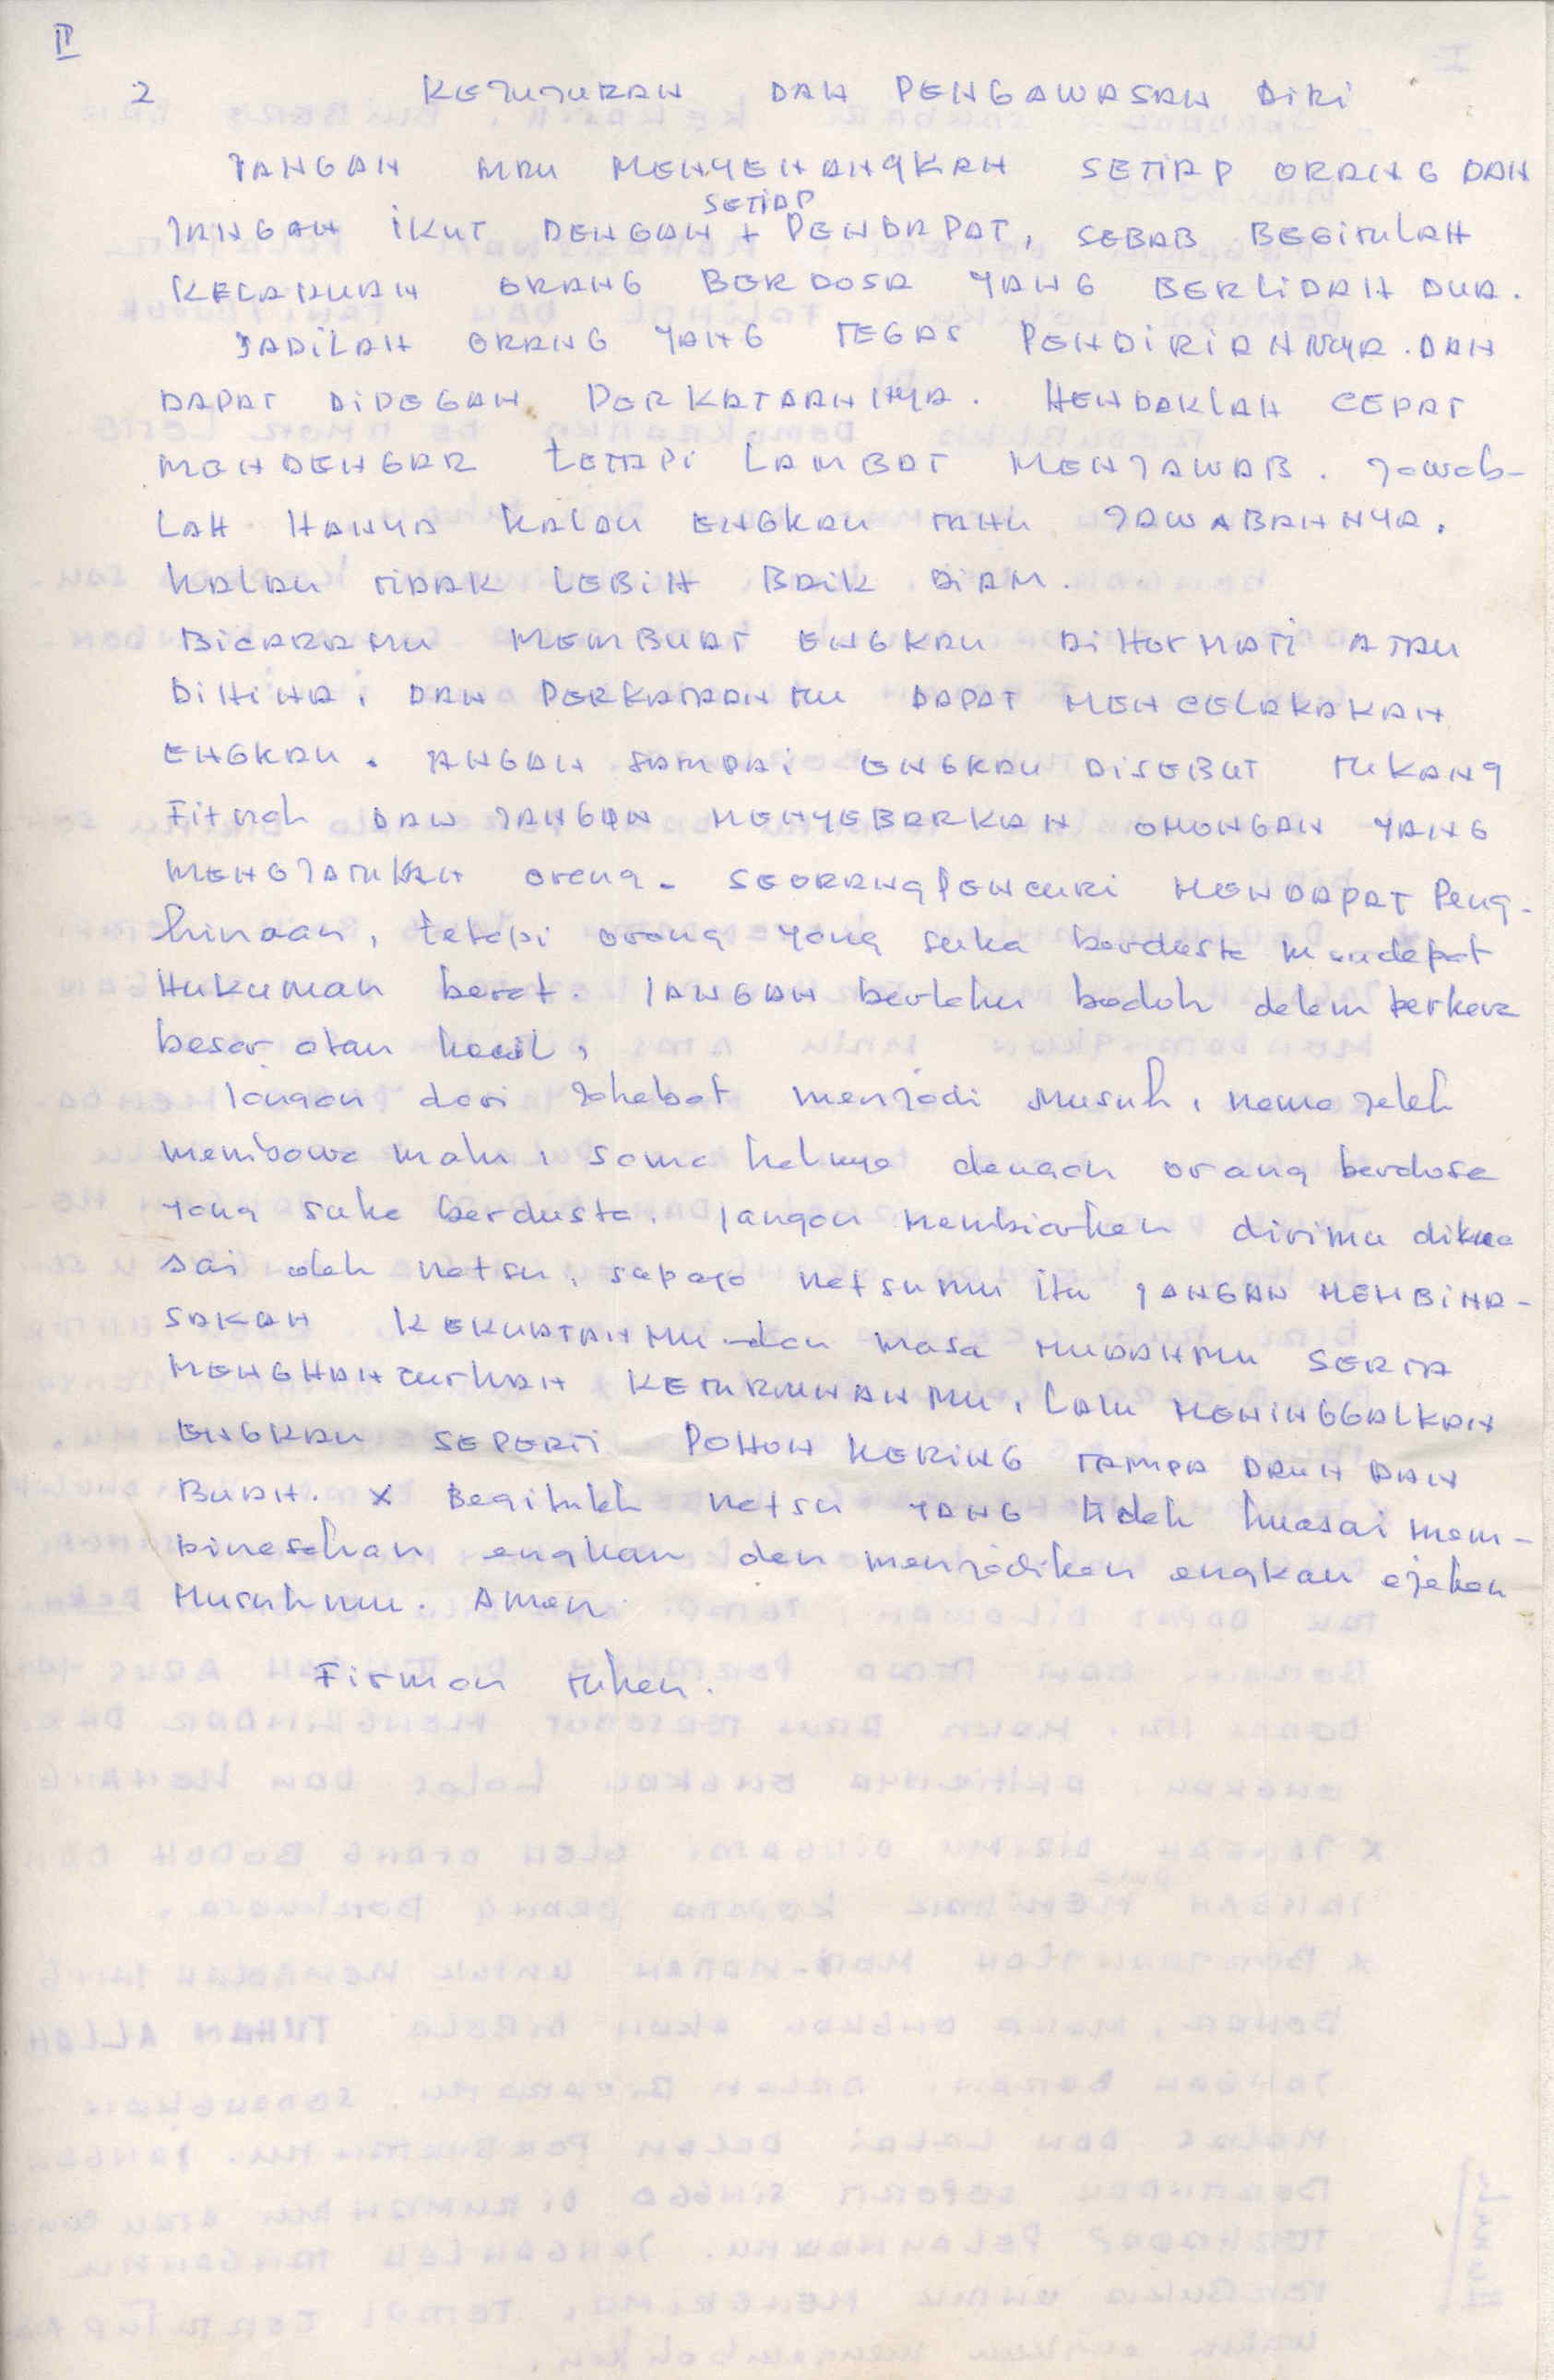 II
2 KEJUJURAN DAN PENGAWASAN DIRI
JANGAN MAU MENYENANGKAN SETIAP ORANG DAN
SETIAP
JANGAN IKUT DENGAN + PENDAPAT, SEBAB BEGITULAH
KELAKUAN ORANG BERDOSA YANG BERLIDAH DUA.
JADILAH ORANG YANG TEGAS PENDIRIANNYA. DAN
DAPAT DIPEGAN PERKATAANNYA. HENDAKLAH CEPAT
MENDENGAR tETAPI LAMBAT MENJAWAB. Jawab-
LAH HANYA KALAU ENGKAU TAHU JAWABANNYA.
KALAU TIDAK LEBIH BAIK DIAM.
BICARAMU MEMBUAT ENGKAU DIHORMATI ATAU
DIHINA, DAN PERKATAANMU DAPAT MENCELAKAKAN
ENGKAU. JANGAN SAMPAI ENGKAU DISEBUT TUKANG
Fitnah DAN JANGAN MENYEBARKAN OMONGAN YANG
MENGJATUKAN orang. SEORANG PENCURI MENDAPAT Peng-
hinaan, tetapi orang yang suka berdusta mendapat
Hukuman berat. JANGAN berlaku bodoh dalam perkara
besar atau kecil,
Jangan dari sahabat menjadi musuh, nama jelek
membawa malu, sama halnya dengan orang berdosa
yang suka berdusta. Jangan membiarkan dirimu dikua
sai oleh nafsu, supaya nafsumu itu JANGAN MEMBINA-
SAKAN KEKUATANMU dan masa MUDAHMU SERTA
MENGHANCURKAN KETURUNANMU, LALU MENINGGALKAN
ENGKAU SEPERTI POHON KERING TAMPA DAUN DAN
BUAH. x Begitulah nafsu YANG tidak kuasai mem-
binasakan engkau dan menjadikan engkau ejekan
Musuhmu. Amen.
Firman Tuhan.